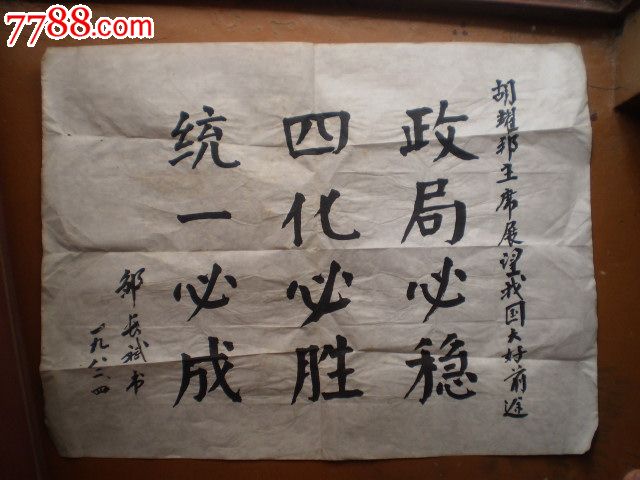 7788.com
胡耀邦主席展望我国大好前途
政局必稳
四化必胜
统一必成
邹长斌书
一九八二四